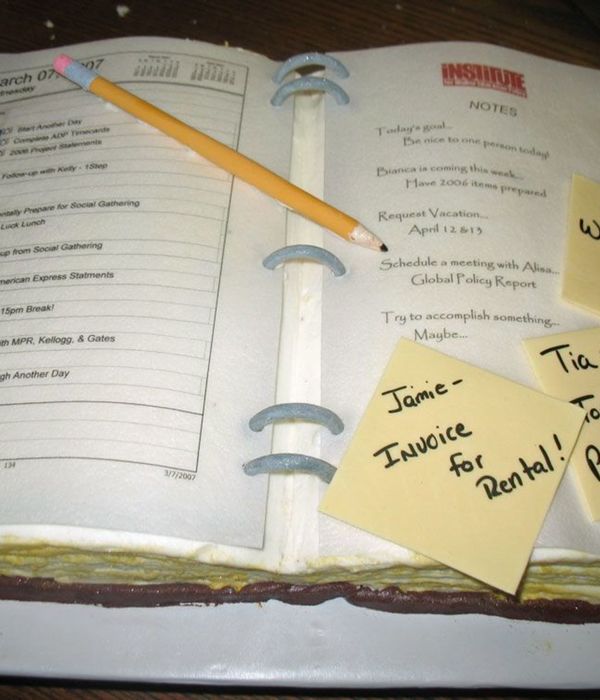 arch 07, 2007
Wednesday
Start Another Day
Complete ADP Timecards
2006 Project Statments
Follow-up with Kelly - 1Step
ntally Prepare for Social Gathering
Luck Lunch
up from Social Gathering
merican Express Statments
15pm Break!
ith MPR, Kellogg, & Gates
gh Another Day
134
3/7/2007
INSTITUTE
NOTES
Today's goal...
Be nice to one person today!
Bianca is coming this week...
Have 2006 items prepared
Request Vacation...
April 12 & 13
Schedule a meeting with Alisa...
Global Policy Report
Try to accomplish something...
Maybe...
Jamie-
Invoice
for
Rental!
W
Tia
To